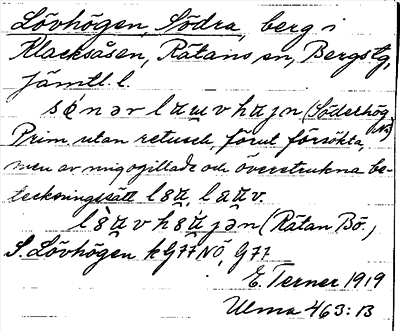 Lövhögen, Södra, berg i
Klacksåsen, Rätans sn, Bergs tg,
Jämtl. l.
(Söderhög
Prim. utan retusch, förut försökta,
men av mig ogillade och överstrukna be-
teckningssätt
(Rätan Bö.)
S. Lövhögen k G77NÖ, G77
E. Terner 1919
Ulma 463:13